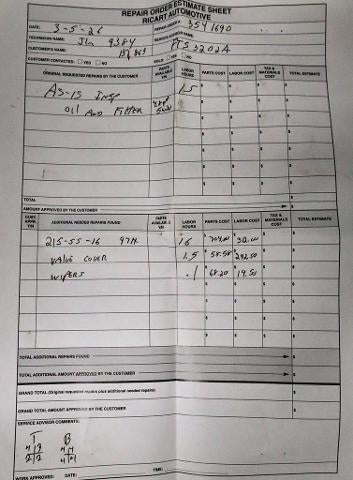 REPAIR ORDER ESTIMATE SHEET
RICART AUTOMOTIVE
DATE: 3-5-26 REPAIR ORDER # 3541690
TECHNICIAN NAME: Jln 9384 SERVICE ADVISOR NAME:
CUSTOMER'S NAME PTS3202A
CUSTOMER CONTACTED: YES NO SOLD YES NO
ORIGINAL REQUESTED REPAIRS BY THE CUSTOMER PARTS AVAILABLE Y/N LABOR HOURS PARTS COST LABOR COST TAX & MATERIALS COST TOTAL ESTIMATE
AS-IS Insp 1.5
Oil And Filter
TOTAL
AMOUNT APPROVED BY THE CUSTOMER
CUST. APPR. Y/N ADDITIONAL NEEDED REPAIRS FOUND PARTS AVAILABLE Y/N LABOR HOURS PARTS COST LABOR COST TAX & MATERIALS COST TOTAL ESTIMATE
215-55-16 97H 1.6 704.00 312.00
Valve Cover 1.5 58.50 292.50
Wipers .1 68.20 19.50
TOTAL ADDITIONAL REPAIRS FOUND
TOTAL ADDITIONAL AMOUNT APPROVED BY THE CUSTOMER
GRAND TOTAL (Original requested repairs plus additional needed repairs)
GRAND TOTAL AMOUNT APPROVED BY THE CUSTOMER
SERVICE ADVISOR COMMENTS:
T B
2|2 4|4
WORK APPROVED: DATE: TIME: